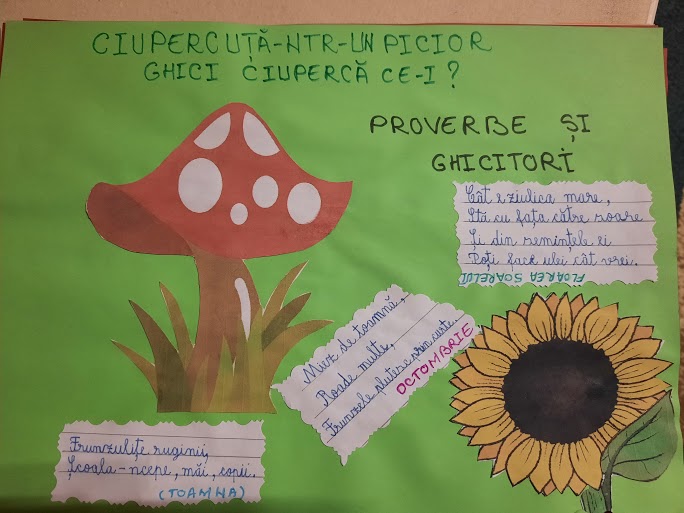 CIUPERCUȚĂ-NTR-UN PICIOR
GHICI CIUPERCĂ CE-I?
PROVERBE ȘI
GHICITORI
Cât e ziulica mare,
Stă cu fața către soare
Și din semințele ei
Poți face ulei cât vrei.
FLOAREA SOARELUI
Miez de toamnă,
Roade multe,
Frunzele plutesc prin curte.
OCTOMBRIE
Frunzulițe ruginii,
Școala-ncepe, măi, copii.
(TOAMNA)